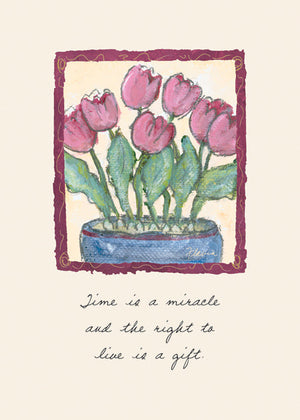 Time is a miracle
and the right to
live is a gift.